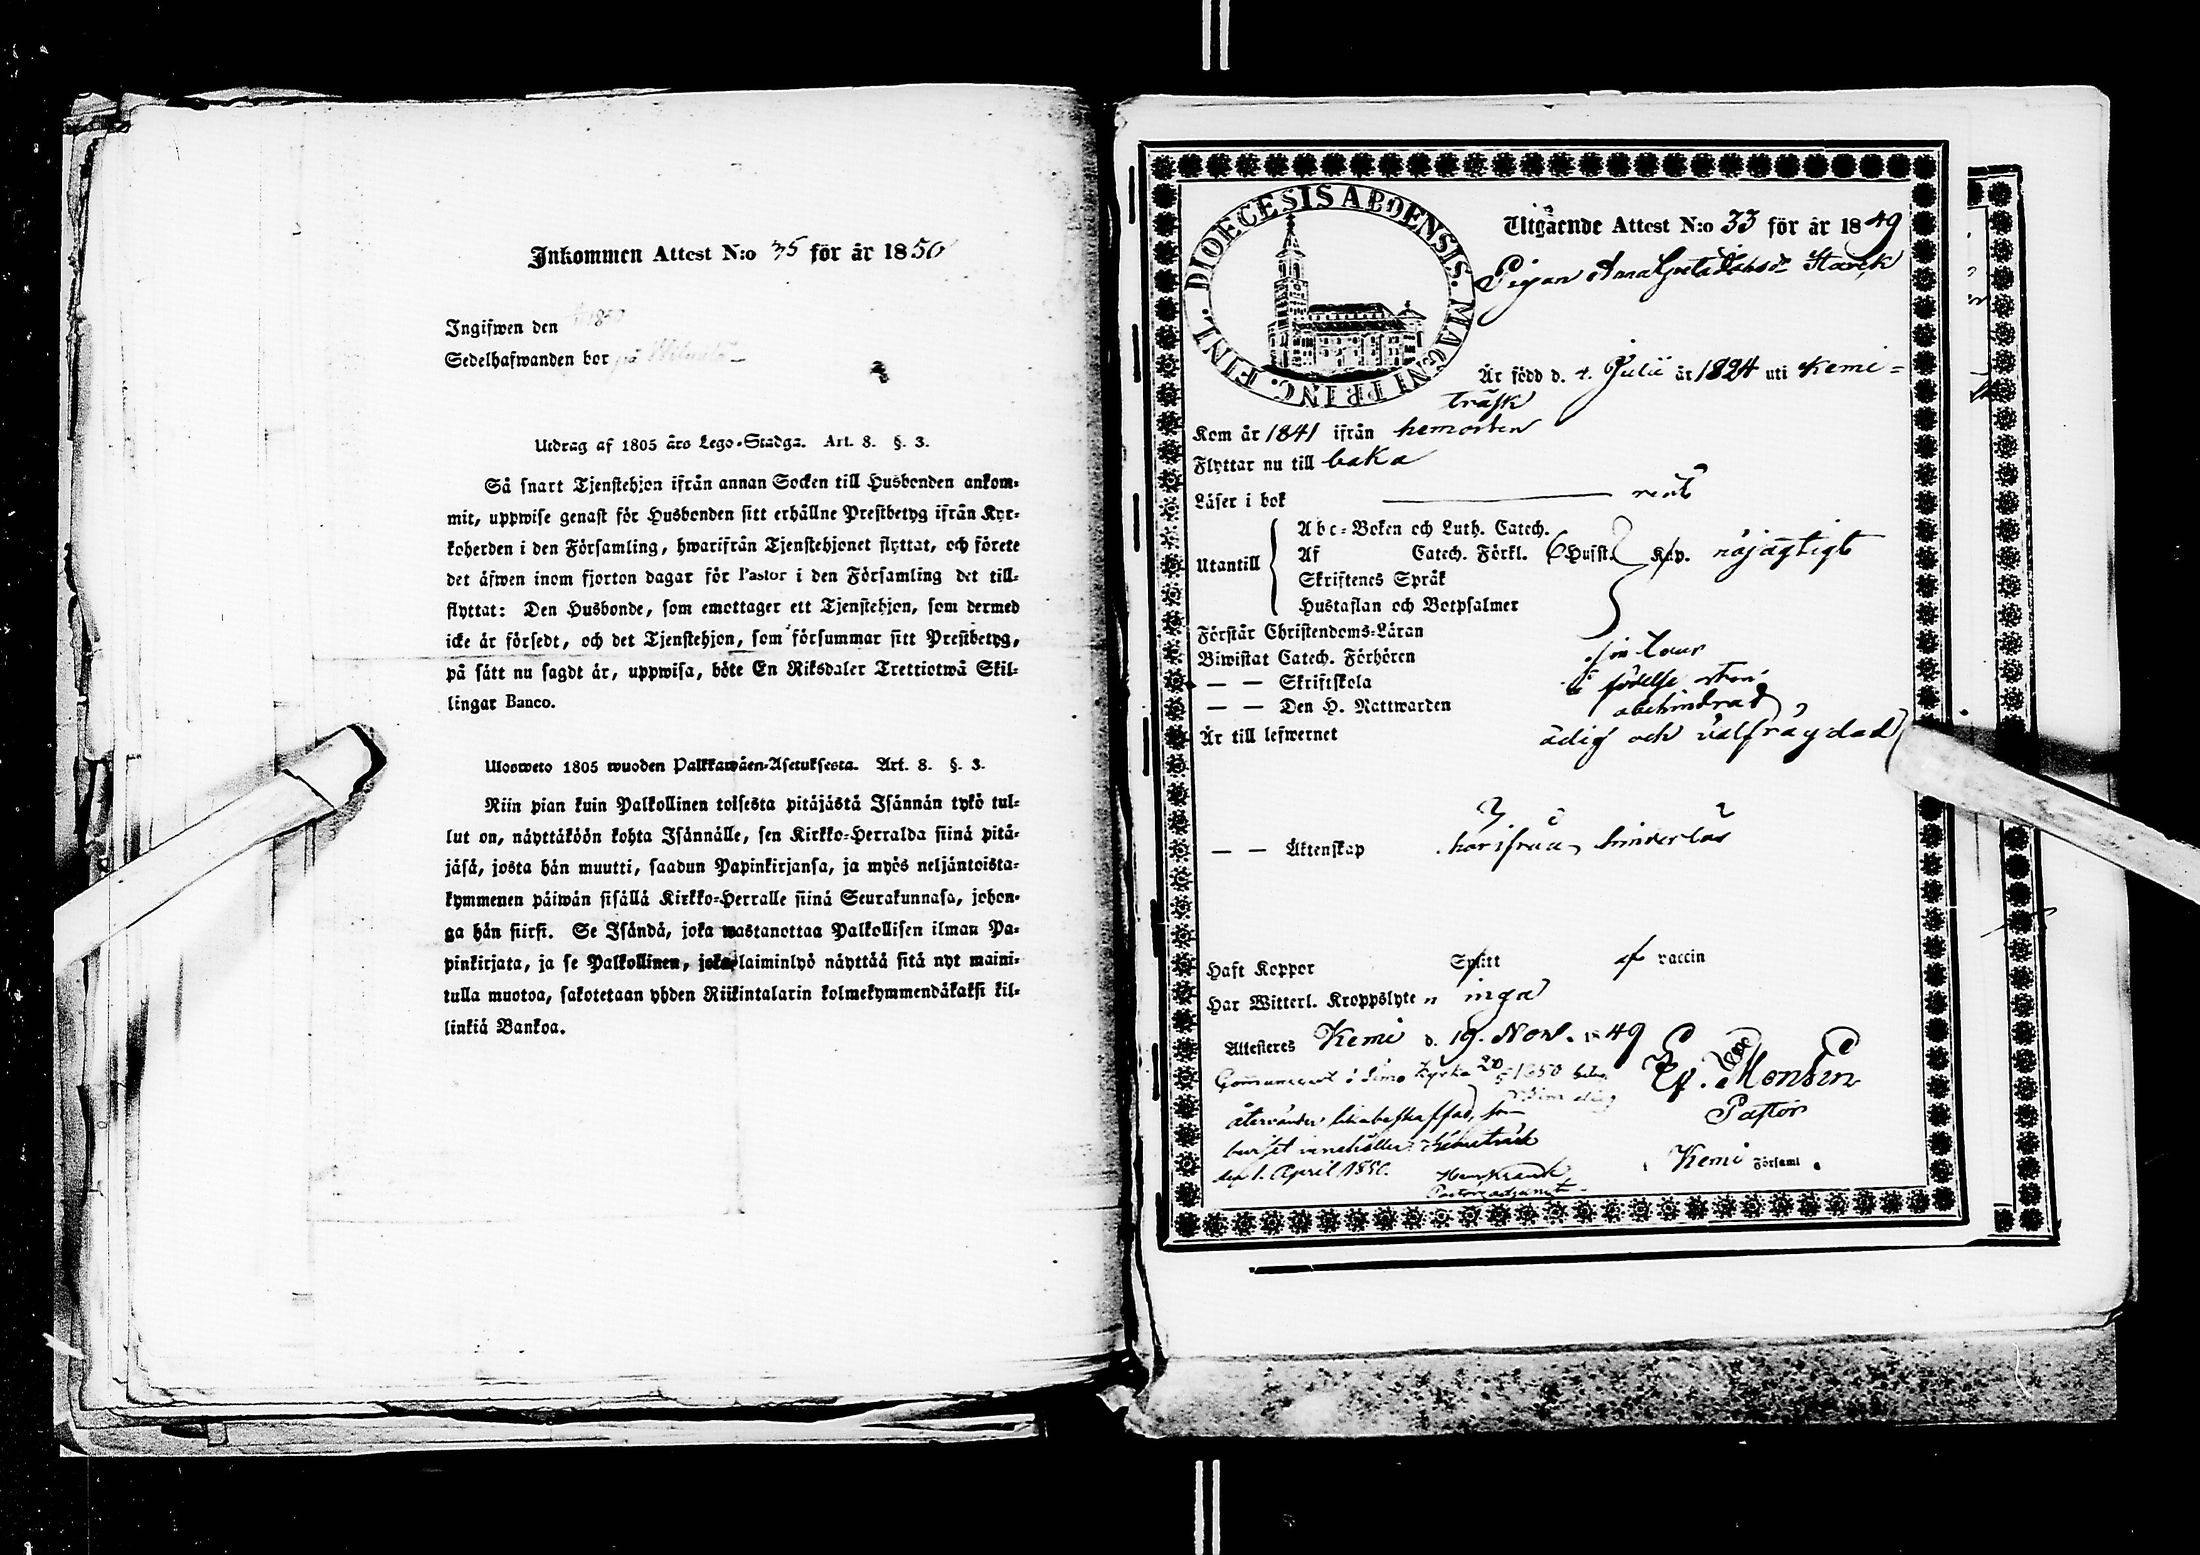 Inkommen Attest N:o 35 för år 1850
Ingifwen den
Sedelhafwanden bor på
Utdrag af 1805 års Lego-Stadga. Art. 8. §. 3.
Så snart Tjenstehjon ifrån annan Socken till Husbonden ankom-
mit, uppwise genast för Husbonden sitt erhållne Prestbetyg ifrån Kyr-
koherden i den Församling, hwarifrån Tjenstehjonet flyttat, och förete
det äfwen inom fjorton dagar för Pastor i den Församling det till-
flyttat: Den Husbonde, som emottager ett Tjenstehjon, som dermed
icke är försedt, och det Tjenstehjon, som försummar sitt Prestbetyg,
på sätt nu sagdt är, uppwisa, böte En Riksdaler Trettiotwå Skil-
lingar Banco.
Ulosweto 1805 wuoden Palkkawäen-Asetuksesta. Art. 8. §. 3.
Niin pian kuin Palkollinen toisesta pitäjästä Isännän tykö tul-
lut on, näyttäköön kohta Isännälle, sen Kirkko-Herralda siinä pitä-
jäsä, josta hän muutti, saadun Papinkirjansa, ja myös neljäntoista-
kymmenen päiwän sisällä Kirkko-Herralle siinä Seurakunnasa, johon-
ga hän siirsi. Se Isändä, joka wastanottaa Palkollisen ilman Pa-
pinkirjata, ja se Palkollinen, joka laiminlyö näyttää sitä nyt maini-
tulla muotoa, sakotetaan yhden Riikintalarin kolmekymmendäkaksi kil-
linkiä Bankoa.
DIOECESIS ABOENSIS. MAGNI PRINC. FINL.
Utgående Attest N:o 33 för år 1849
Pigan Anna Greta Johsdr Starck
Är född d. 4. Julii år 1824 uti Kemi=
träsk
Kom år 1841 ifrån hemorten
Flyttar nu till baka
Läser i bok rent
Abc-Boken och Luth. Catech.
Utantill Af Catech. Förkl. 6 Husst. Kap. nöjagtigt
Skriftenes Språk
Hustaflan och Botpsalmer
Förstår Christendoms-Läran
Biwistat Catech. Förhören
— — Skriftskola födelse orten
— — Den H. Nattwarden obehindrad
Är till lefwernet ädig och välfrägdad
— — Äktenskap härifrån hinderlös
Haft Koppor Splitt af vaccin
Har Witterl. Kroppslyten inga
Attesteras Kemi d. 19. Nov. 1849
Pastor
återvänder likabeskaffad, som
innehåller. Kemiträsk
den 1. April 1850.
Pastorsadjunct
Kemi Församl.